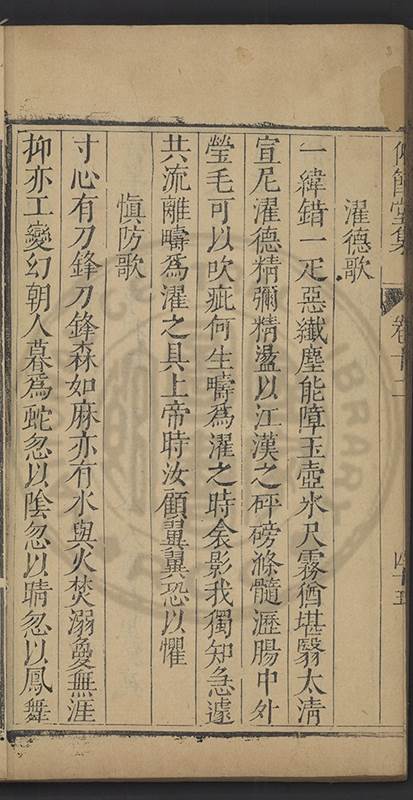 堂集
卷十二
四十五
濯德歌
一緯錯一疋惡纖塵能障玉壺氷尺霧猶堪翳太清
宣尼濯德精彌精盪以江漢之砰磅滌髓瀝腸中外
瑩毛可以吹疵何生疇為濯之時衾影我獨知急遽
共流離疇為濯之具上帝時汝顧翼翼恐以懼
慎防歌
寸心有刀鋒刀鋒森如麻亦有水與火焚溺憂無涯
抑亦工變幻朝人暮為蛇忽以陰忽以晴忽以鳳舞